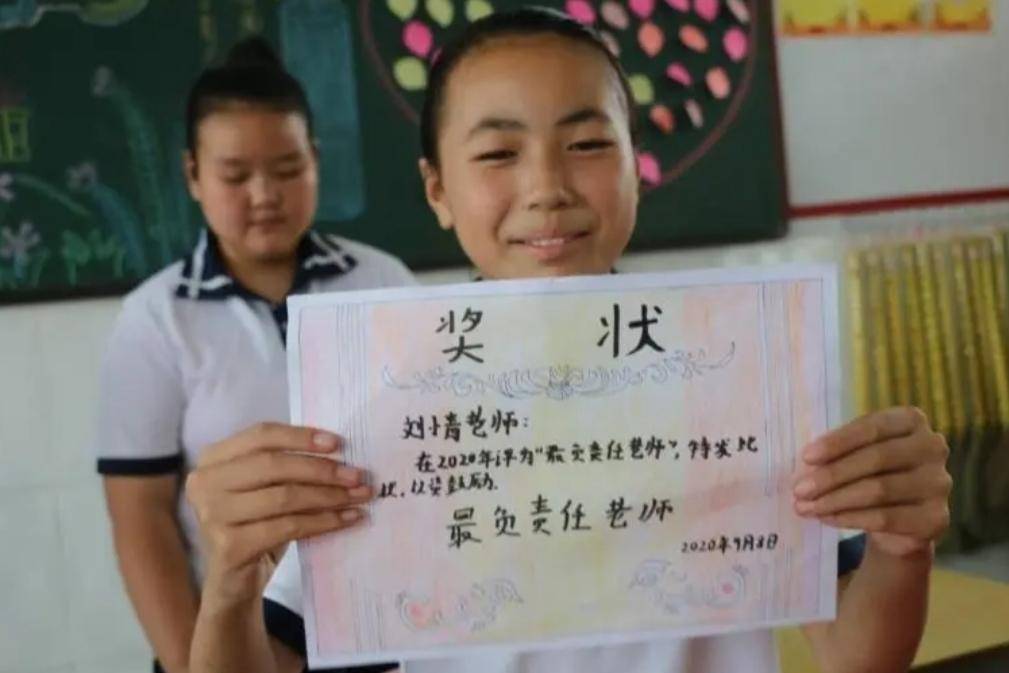 奖 状
刘小青老师：
在2020年评为“最负责任老师”，特发此
状，以资鼓励。
最负责任老师
2020年9月8日